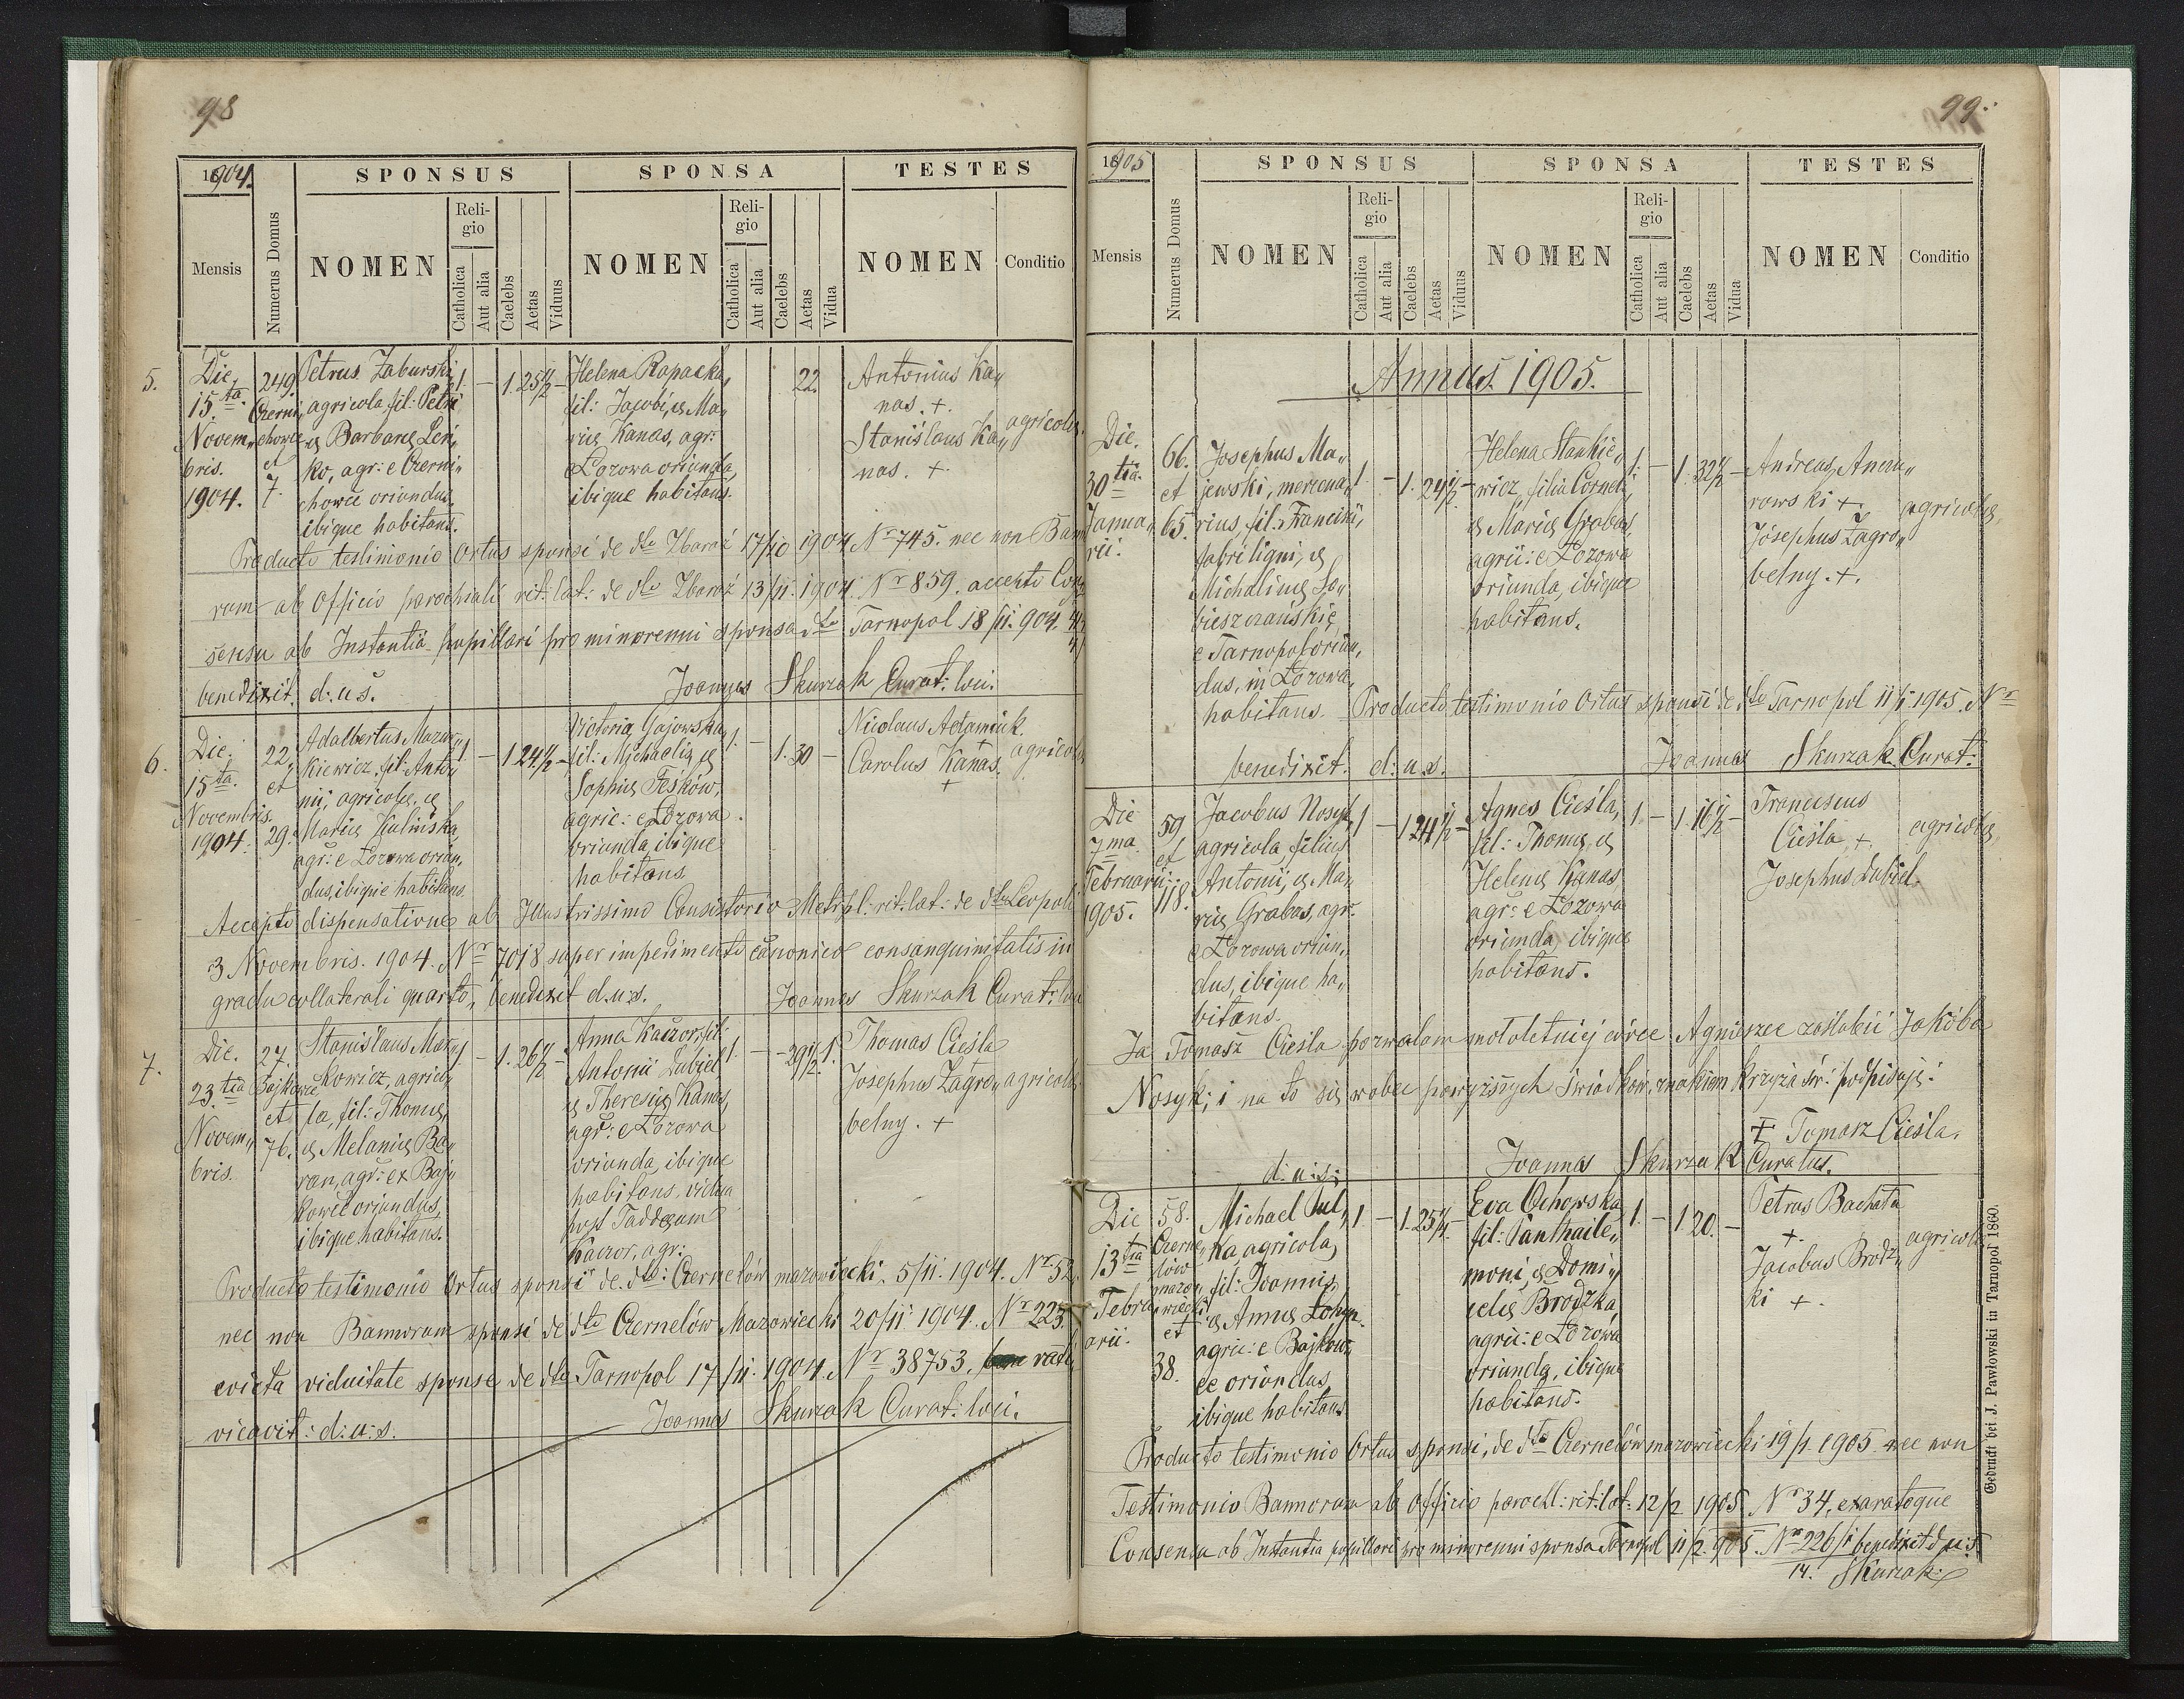 98
1904.
SPONSUS
SPONSA
TESTES
Mensis
Numerus Domus
NOMEN
Religio
Catholica
Aut alia
Caelebs
Aetas
Viduus
NOMEN
Religio
Catholica
Aut alia
Caelebs
Aetas
Vidua
NOMEN
Conditio
5.
Die
15.ta
Novem„
bris.
1904.
249.
Czerni„
chowce
et
7.
Petrus Zaburski,
agricola, fil: Petri
et Barbarae Len„
ko, agr: e Czerni„
chowce oriundus,
ibique habitans.
1. — 1. 25 1/2 —
Helena Rapacka,
fil: Jacobi, et Ma„
riae Kanas, agr:
e Łozowa oriunda,
ibique habitans.
22.
Antonius Ka„
nas. +.
Stanislaus Ka„
nas. +
agricolae.
Producto testimonio Ortus sponsi de dto Zbaraż 17/10 1904 Nr 745. nec non Bann
rum ab Officio parochiali rit: lat: de dto Zbaraż 13/11. 1904. Nr 859. accepto Con
sensu ab Instantia pupillari pro minorenni sponsa dto Tarnopol 18/11. 904.
benedixit. d: u s.
Joannes Skurzak Curat: loci.
6.
Die.
15ta.
Novembris.
1904.
22.
et
29.
Adalbertus Mazur„
kiewicz, fil: Anto„
nii, agricolae, et
Mariae Kulińska,
agr: e Łozowa oriun„
dus, ibique habitans.
1. — 1 24 1/2 —
Victoria Gajowska,
fil: Michaelis, et
Sophiae Feśków,
agric: e Łozowa
oriunda, ibique
habitans
1. — 1. 30 —
Nicolaus Adamiuk.
+
Carolus Kanas.
+
agricolae
Accepta dispensatione ab Illustrissimo Consistorio Metrpl: rit: lat: de dto Leopoli
3 Novembris. 1904. Nr 7018 super impedimento canonico consanquinitatis in
gradu collaterali quarto, benedixit d: u: s.
Joannes Skurzak Curat: loci
7.
Die.
23.tia
Novem„
bris.
27.
Bajkowce
et
76.
Stanislaus Mar„
kowicz, agrico„
la, fil: Thomae,
et Melaniae Ba„
ran, agr: ex Baj„
kowce oriundus,
ibique habitans.
1 — 1. 26 1/2 —
Anna Kaczor, fil:
Antonii Dubiel
et Theresiae Kanas,
agr: e Łozowa
oriunda, ibique
habitans, vidua
post Taddeum
Kaczor, agr:
1. — — 29 1/2 1.
Thomas Cieśla
Josephus Zagro„
belny. +
agricolae
Producto testimonio Ortus sponsi de dto: Czernelów mazowiecki. 5/11. 1904. Nr 52.
nec non Bannorum sponsi de dto Czernelów Mazowiecki 20/11 1904. Nr 223.
evicta viduitate sponsae de dto Tarnopol 17/11. 1904. Nr 38753, rati„
vicavit: d: u: s.
Joannes Skurzak Curat: loci.
99.
1905
SPONSUS
SPONSA
TESTES
Mensis
Numerus Domus
NOMEN
Religio
Catholica
Aut alia
Caelebs
Aetas
Viduus
NOMEN
Religio
Catholica
Aut alia
Caelebs
Aetas
Vidua
NOMEN
Conditio
Annus 1905.
Die.
30tia
Janua„
rii.
66.
et
65.
Josephus Ma„
jewski, mercena„
rius, fil: Francisci,
fabri ligni, et
Michalinae So„
bieszczańskie,
e Tarnopol oriun„
dus, in Łozowa,
habitans.
1. — 1. 24 1/2 —
Helena Stankie„
wicz, filia Corneli
et Mariae Grabas,
agrii: e Łozowa
oriunda, ibique
habitans.
1. — 1. 32 1/2 —
Andreas
rowski +.
Josephus Zagro„
belny. +.
agricolae,
Producto testimonio Ortus sponsi de dto Tarnopol 11/1 1905. Nr
benedixit. d: u s.
Joannes Skurzak Curat:
Die
7ma.
Februarii.
1905.
59.
et
118.
Jacobus Nosyk,
agricola, filius
Antonii, et Ma„
riae Grabas, agr:
e Łozowa oriun„
dus, ibique ha„
bitans.
1 — 1 24 1/2 —
Agnes Cieśla,
fil: Thomae, et
Helenae Kanas
agr: e Łozowa
oriunda, ibique
habitans.
1. — 1. 16 1/2 —
Franciscus
Cieśla, +.
Josephus Dubiel.
agricolae,
Ja Tomasz Cieśla pozwalam małoletniej córce Agnieszce zaślubić Jakóba
Nosyk; i na to się wobec powyższych świadków, znakiem krzyża św: podpisuję:
+ Tomasz Cieśla.
d: u: s:
Joannes Skurzak Curatus.
Die
13tia
Febru„
arii.
58.
Czerne„
lów
mazo„
wiecki
et
38.
Michael
ka, agricola,
fil: Joannis,
et Annae
agric: e Bajkow„
ce oriundus,
ibique habitans
1. — 1. 25 1/2 —
Eva Ochowska
fil: Panthaile„
moni, et Domi„
celae Brodzka
agric: e Łozówa
oriunda, ibique
habitans.
1. — 1. 20. —
Petrus Bachata
+.
Jacobus Brodz„
ki +.
agricolae
Producto testimonio Ortus sponsi, de dto Czernelów mazowiecki 19/1. 1905. nec non
Testimonio Bannorum ab Officio parochl: rit: lat: 12/2 1905. Nr 34, exaratoque
Consensu ab Instantia pupillari pro minorenni sponsa Tarnopol 11/2. 905. Nr 226/1 benedixit d u: s.
14. Skurzak
Gedruckt bei J. Pawłowski in Tarnopol 1860.